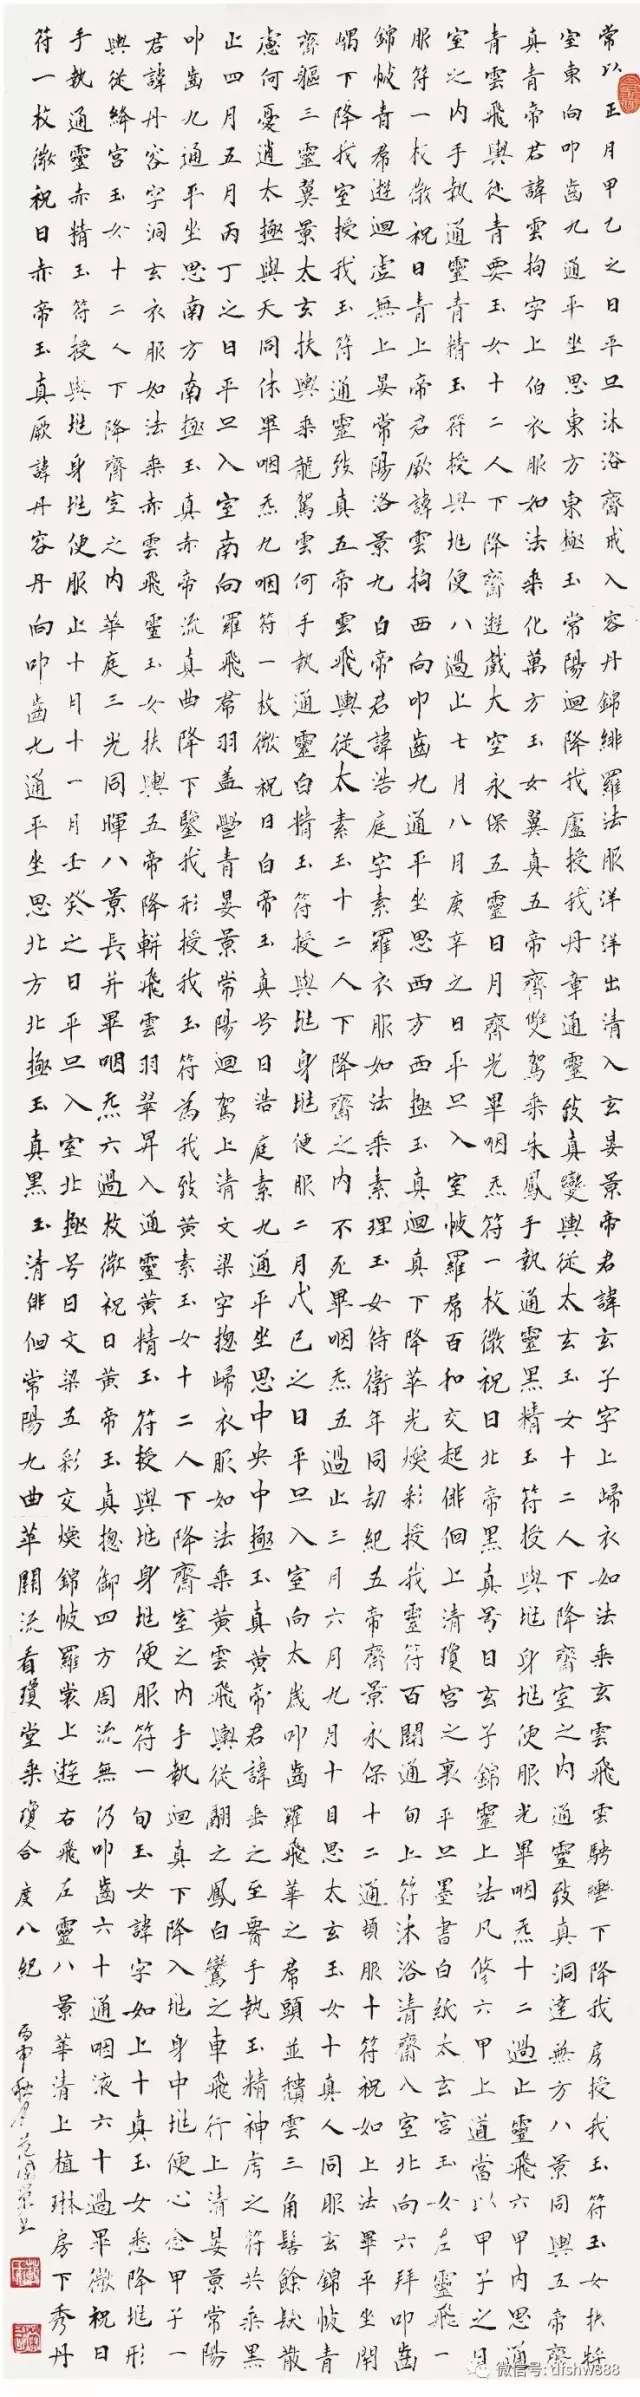 常以正月甲乙之日平旦沐浴齋戒入容丹錦緋羅法服洋洋出清入玄晏景帝君諱玄子字上歸衣如法乘玄雲飛雲騁轡下降我房授我玉符玉女扶將
室東向叩齒九通平坐思東方東極玉常陽迴降我廬授我丹章通靈致真變輿從太玄玉女十二人下降齋室之內通靈致真洞達無方八景同輿五帝齊
真青帝君諱雲拘字上伯衣服如法乘化萬方玉女翼真五帝齊雙駕乘朱鳳手執通靈黑精玉符授與地身地便服光畢咽炁十二過止靈飛六甲內思通
青雲飛輿從青要玉女十二人下降齋遊戲太空永保五靈日月齊光畢咽炁符一枚微祝曰北帝黑真号曰玄子錦靈上法凡修六甲上道當以甲子之日
室之內手執通靈青精玉符授與地便八過止七月八月庚辛之日平旦入室帔羅帬百和交起俳佪上清瓊宮之裏平旦墨書白紙太玄宮玉女左靈飛一
服符一枚微祝曰青上帝君厥諱雲拘西向叩齒九通平坐思西方西極玉真迴真下降華光煥彩授我靈符百關通旬上符沐浴清齋入室北向六拜叩齒
錦帔青帬遊迴虛無上晏常陽洛景九白帝君諱浩庭字素羅衣服如法乘素理玉女侍衛年同劫紀五帝齊景永保十二通頓服十符祝如上法畢平坐閉
嵎下降我室授我玉符通靈致真五帝雲飛輿從太素玉十二人下降齋之內不死畢咽炁五過止三月六月九月十目思太玄玉女十真人同服玄錦帔青
齊軀三靈翼景太玄扶輿乘龍駕雲何手執通靈白精玉符授與地身地便服二月戊己之日平旦入室向太歲叩齒羅飛華之帬頭並穨雲三角髻餘缺散
慮何憂逍太極與天同休畢咽炁九咽符一枚微祝曰白帝玉真号曰浩庭素九通平坐思中央中極玉真黃帝君諱之至手執玉精神虎之符共乘黑
止四月五月丙丁之日平旦入室南向羅飛帬羽蓋鬱青晏景常陽迴駕上清文梁字揔歸衣服如法乘黃雲飛輿從翮之鳳白鸞之車飛行上清晏景常陽
叩齒九通平坐思南方南極玉真赤帝流真曲降下鑒我形授我玉符為我致黃素玉女十二人下降齋室之內手執迴真下降入地身中地便心念甲子一
君諱丹容字洞玄衣服如法乘赤雲飛靈玉女扶輿五帝降軿飛雲羽翠昇入通靈黃精玉符授與地身地便服符一旬玉女諱字如上十真玉女悉降地形
輿從絳宮玉女十二人下降齋室之內華庭三光同暉八景長并畢咽炁六過枚微祝曰黃帝玉真揔御四方周流無仍叩齒六十通咽液六十過畢微祝曰
手執通靈赤精玉符授與地身地便服止十月十一月壬癸之日平旦入室北極号曰文梁五彩交煥錦帔羅裳上遊右飛左靈八景華清上植琳房下秀丹
符一枚微祝曰赤帝玉真厥諱丹容丹向叩齒九通平坐思北方北極玉真黑玉清俳佪常陽九曲華關流看瓊堂乘瓊合度八紀
丙申秋月范國榮書
微信号: dfshw888